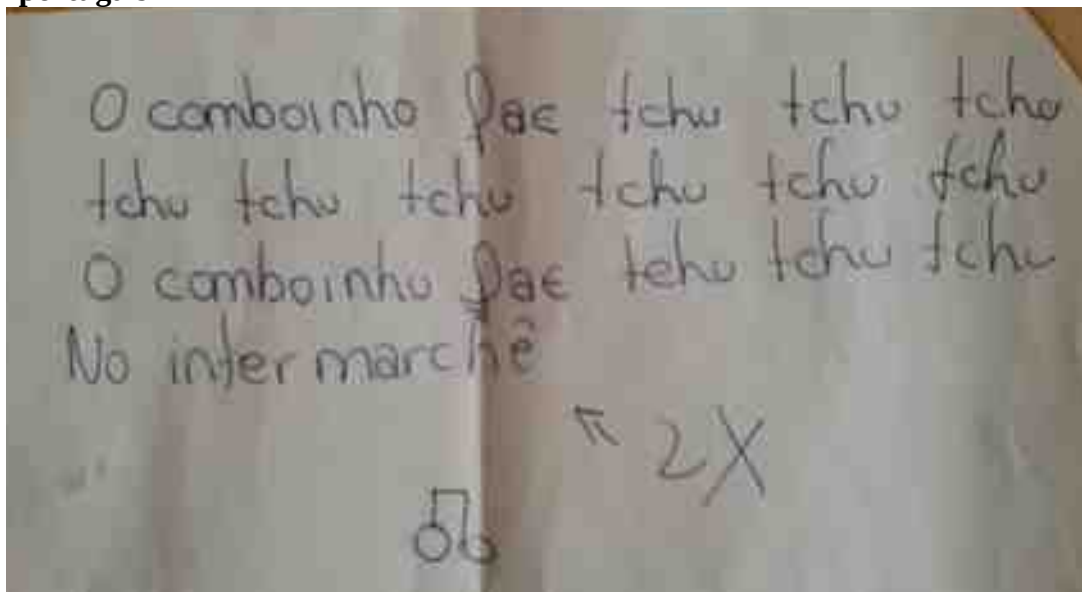 O comboinho fae tchu tchu tchu
tchu tchu tchu tchu tchu tchu
O comboinho fae tchu tchu tchu
No intermarchê
2X